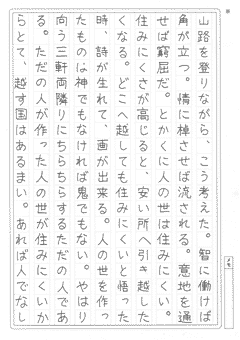 山路を登りながら、こう考えた。智に働けば
角が立つ。情に棹させば流される。意地を通
せば窮屈だ。とかくに人の世は住みにくい。
住みにくさが高じると、安い所へ引き越した
くなる。どこへ越しても住みにくいと悟った
時、詩が生れて、画が出来る。人の世を作っ
たものは神でもなければ鬼でもない。やはり
向う三軒両隣りにちらちらするただの人であ
る。ただの人が作った人の世が住みにくいか
らとて、越す国はあるまい。あれば人でなし
メモ